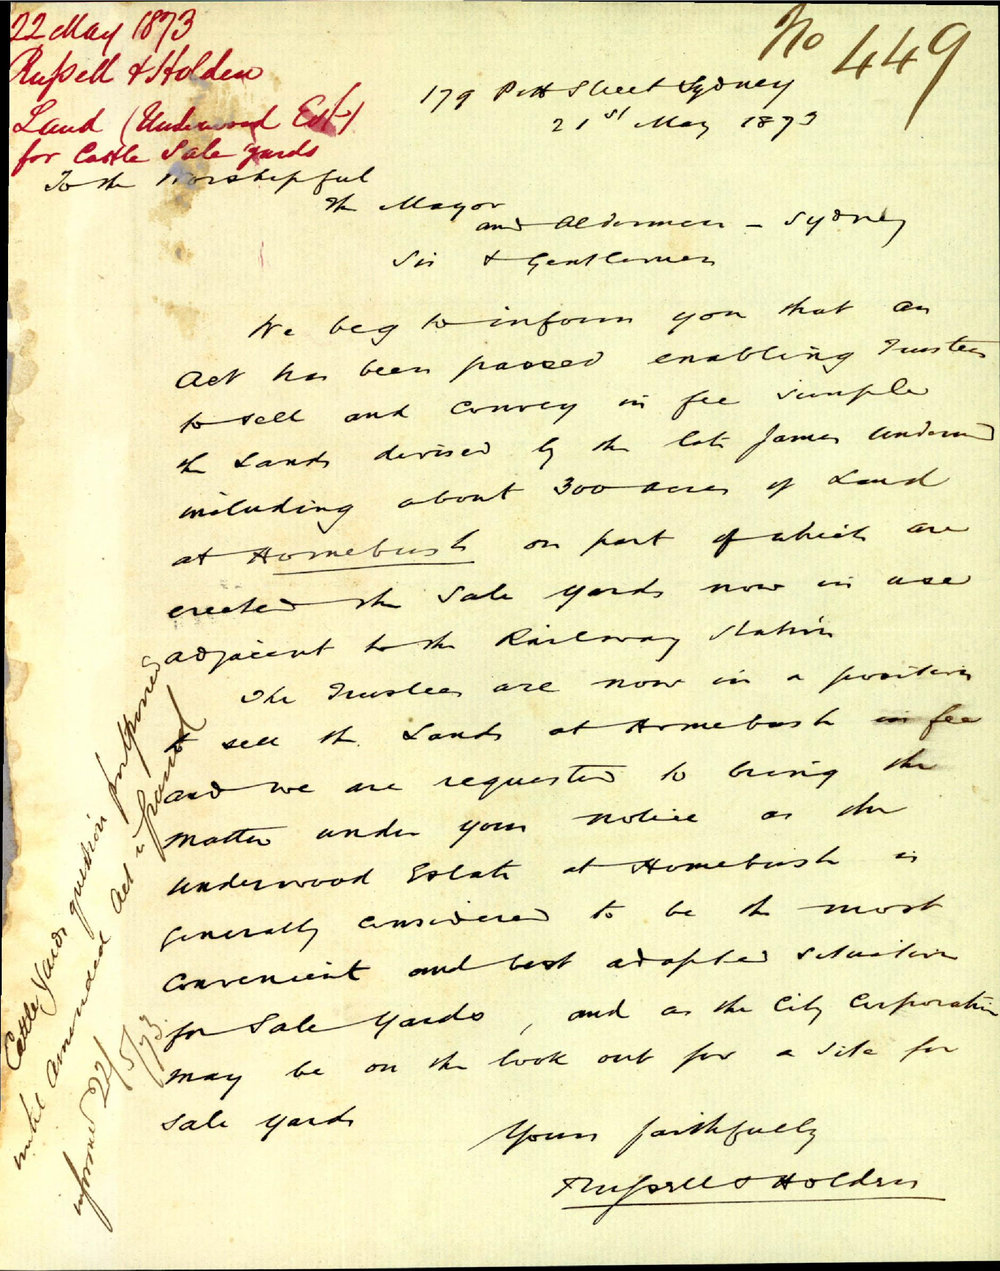 22 May 1873
Russell & Holden
Land (Underwood Est)
for Cattle Sale yards
No 449
179 Pitt Street Sydney
21st May 1873
To the Worshipful
the Mayor
and Aldermen - Sydney
Sir & Gentlemen
We beg to inform you that an
Act has been passed enabling Trustees
to sell and convey in fee simple
the Lands devised by the late James Underwood
including about 300 acres of Land
at Homebush on part of which are
erected the Sale yards now in use
adjacent to the Railway Station
The Trustees are now in a position
to sell the Lands at Homebush in fee
and we are requested to bring the
matter under your notice as the
Underwood Estate at Homebush is
generally considered to be the most
convenient and best adapted situation
for Sale Yards, and as the City Corporation
may be on the look out for a site for
Sale yards
Yours faithfully
Russell & Holden
Cattle Yards question postponed
until amended Act is passed
informed 22/5/73